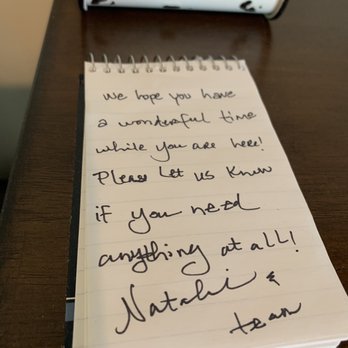 We hope you have
a wonderful time
while you are here!
Please Let us know
if you need
anything at all!
Natalie &
team